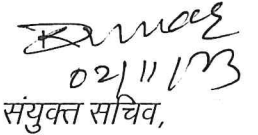 02/11/23
संयुक्त सचिव,